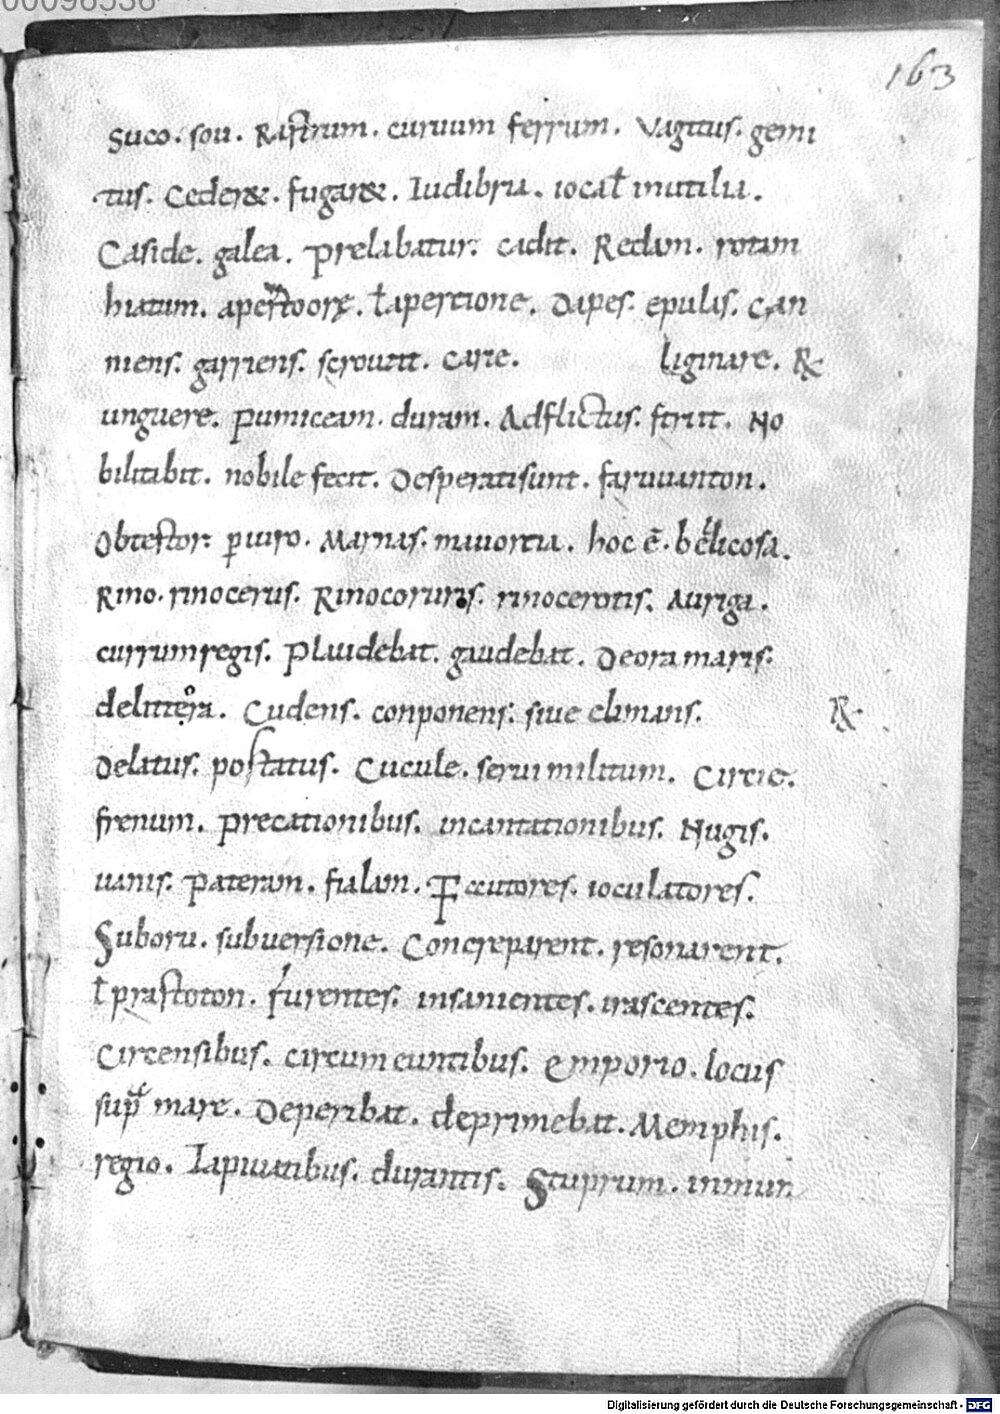 00096536
163
Suco. sou. Rastrum. curuum ferrum. Vagitus. gemi
tus. Ceder&. fugar&. Iudibria. iocał inutilia.
Caside. galea. prelabatur. cadit. Redam. rotam
hiatum. apertoore. ł apertione. Dapes. epulis. Can
niens. garriens. scrouit. Carie.
liginare. R
unguere. Pumiceam. duram. Adflictus. firit. No
bilitabit. nobile fecit. Desperatisunt. faruuanton.
Obtestor. p uiro. Marnas. mauortia. hoc ē. bellicosa.
Rino. rinocerus. Rinocoruris. rinocerotis. Auriga.
currumregis. Plaudebat. gaudebat. Deoramaris.
delittera. Cudens. conponens. siue elimans.
R
Delatus. postatus. Cucule. serui militum. Circie.
frenum. Precationibus. incantationibus. Nugis.
uanis. Pateram. fialam. ioculatores.
Suboru. subuersione. Concreparent. resonarent.
ł prastoton. furentes. insanientes. irascentes.
Circensibus. circumeuntibus. Emporio. locus
sup mare. Deperibat. deprimebat. Memphis.
regio. Iapuuatibus. durantis. Stuprum. inmun
Digitalisierung gefördert durch die Deutsche Forschungsgemeinschaft - DFG